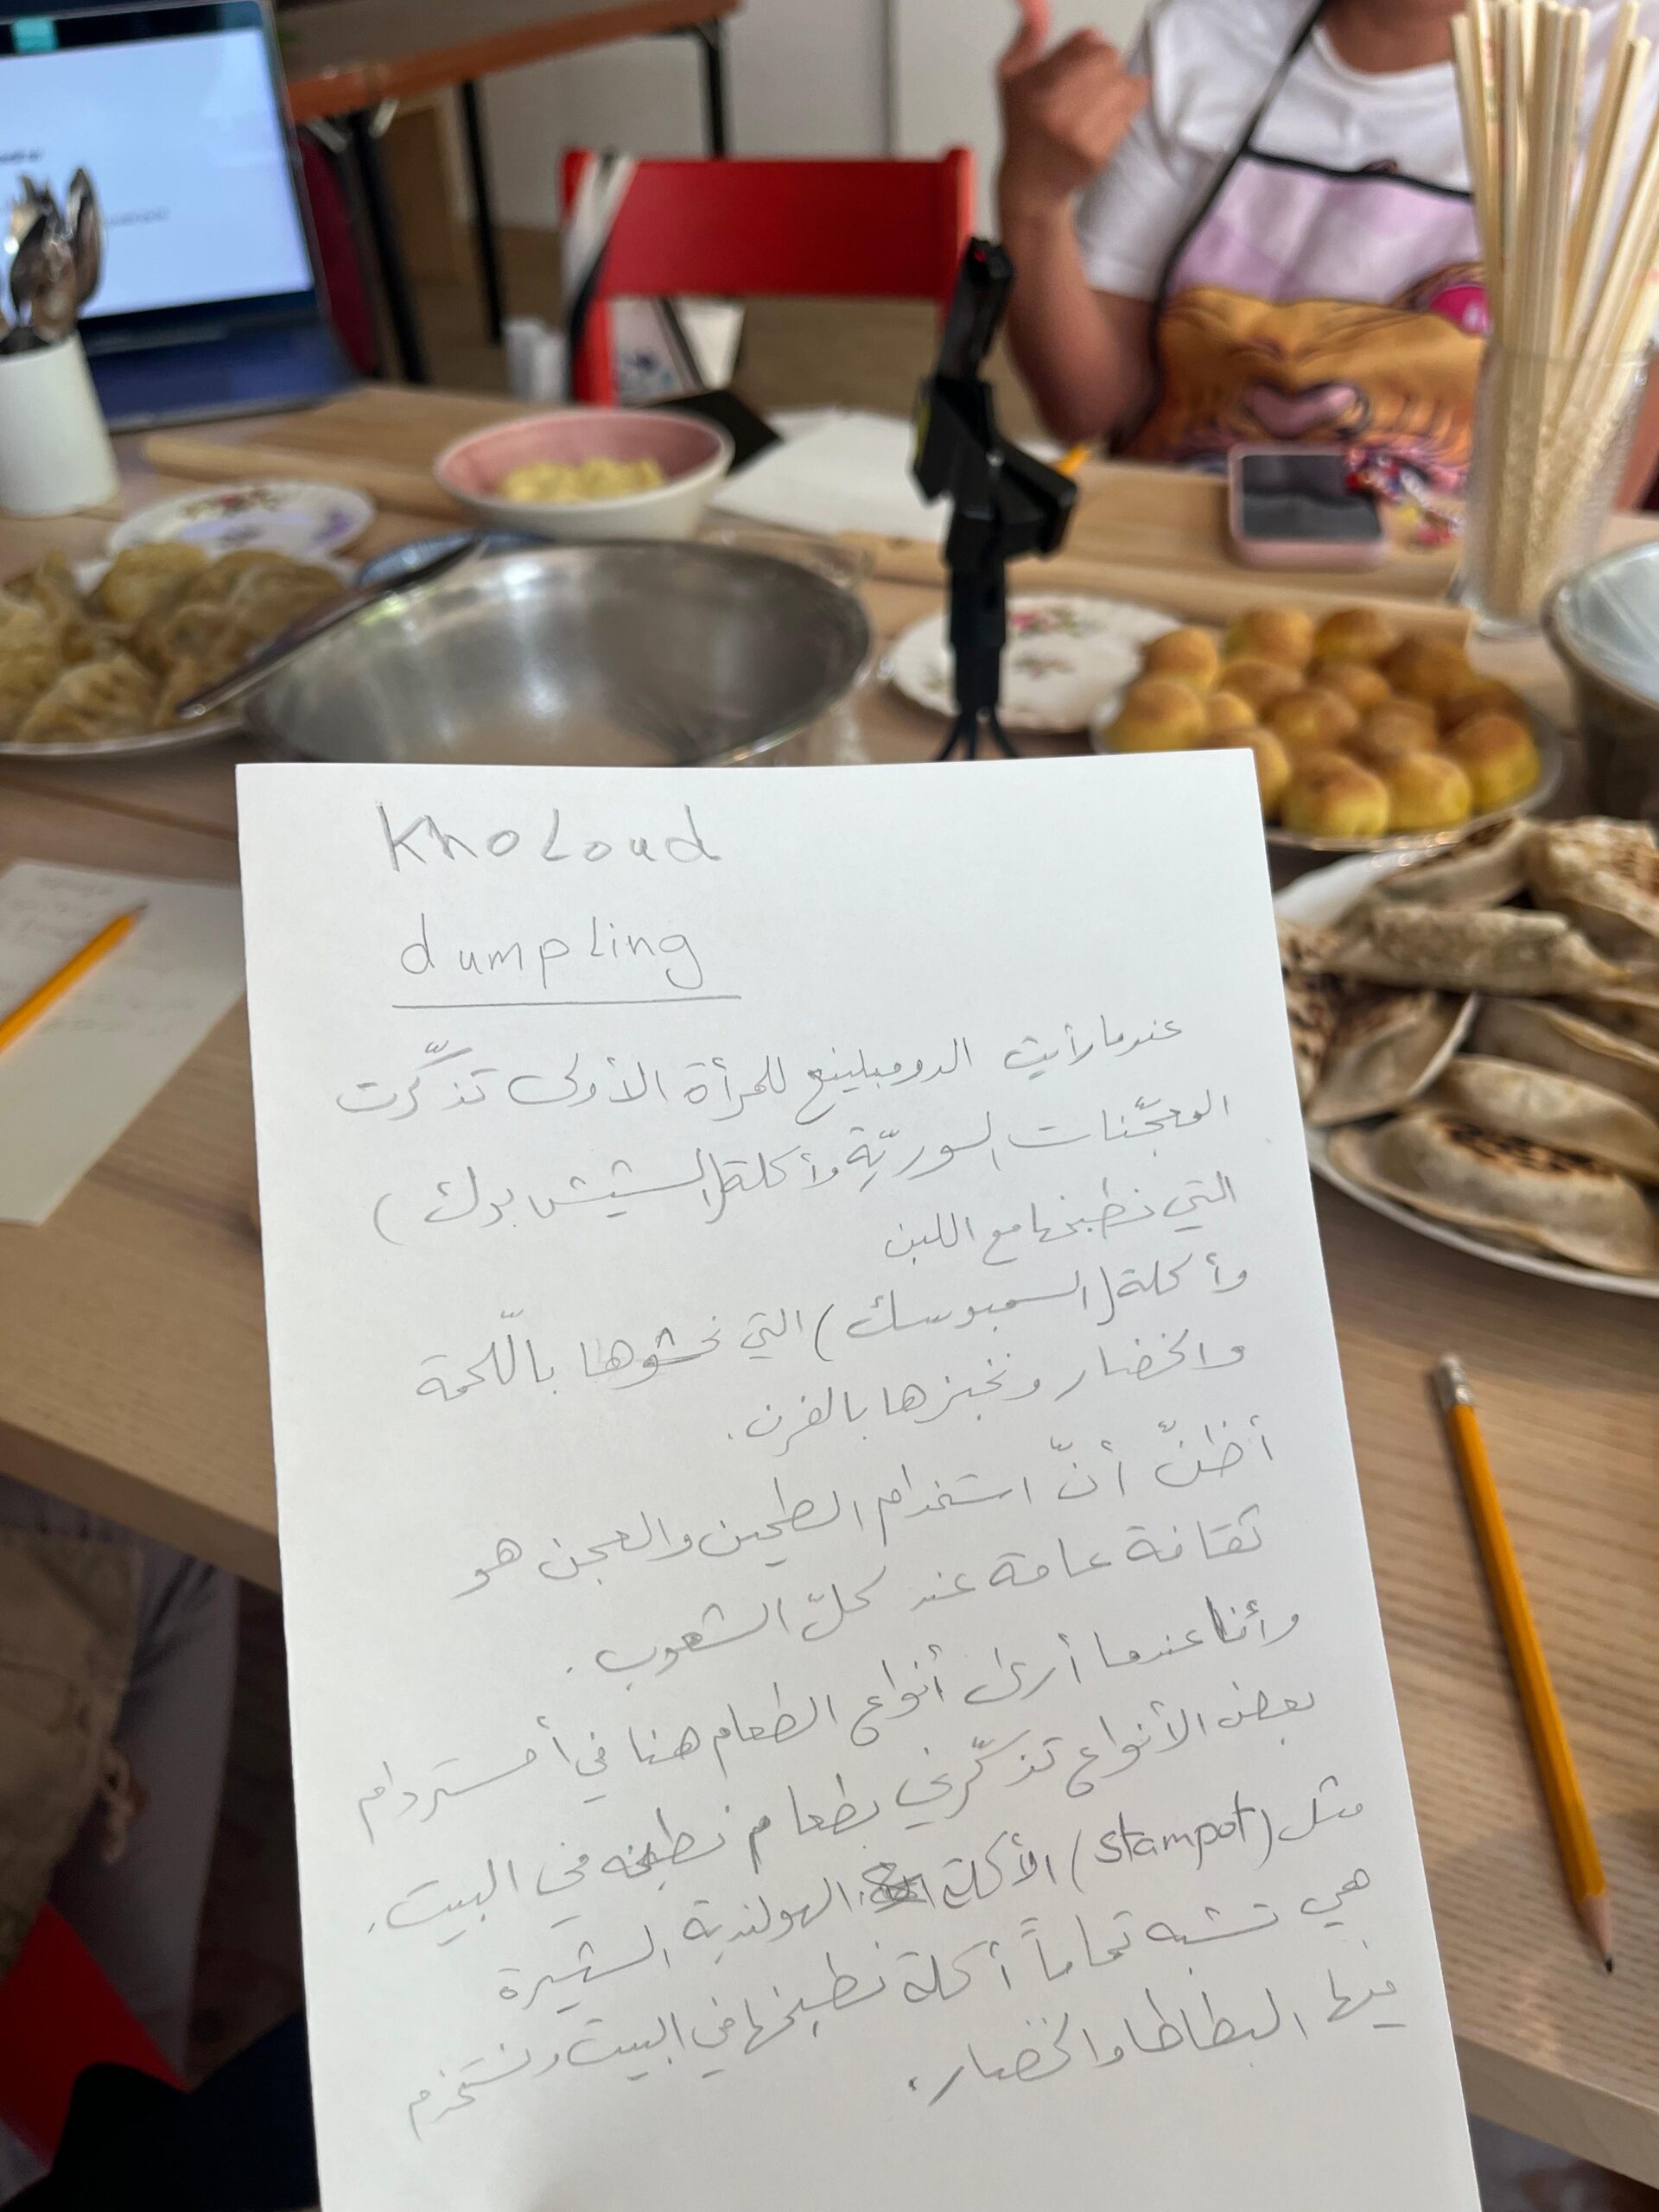 Kholoud
dumpling
عندما رأيت الدومبلينغ للمرأة الأولى تذكّرت
المعجّنات السوريّة وأكلة (الشيش برك)
التي نطبخها مع اللبن
وأكلة (السمبوسك) التي نحشوها باللّحمة
والخضار ونخبزها بالفرن.
أظنّ أنّ استخدام الطحين والعجن هو
ثقافة عامة عند كلّ الشعوب.
وأنا عندما أرى أنواع الطعام هنا في أمستردام
بعض الأنواع تذكّرني بطعام نطبخه في البيت.
مثل (stampot) الأكلة الهولندية الشهيرة
هي تشبه تماماً أكلة نطبخها في البيت ونستخدم
فيها البطاطا والخضار.